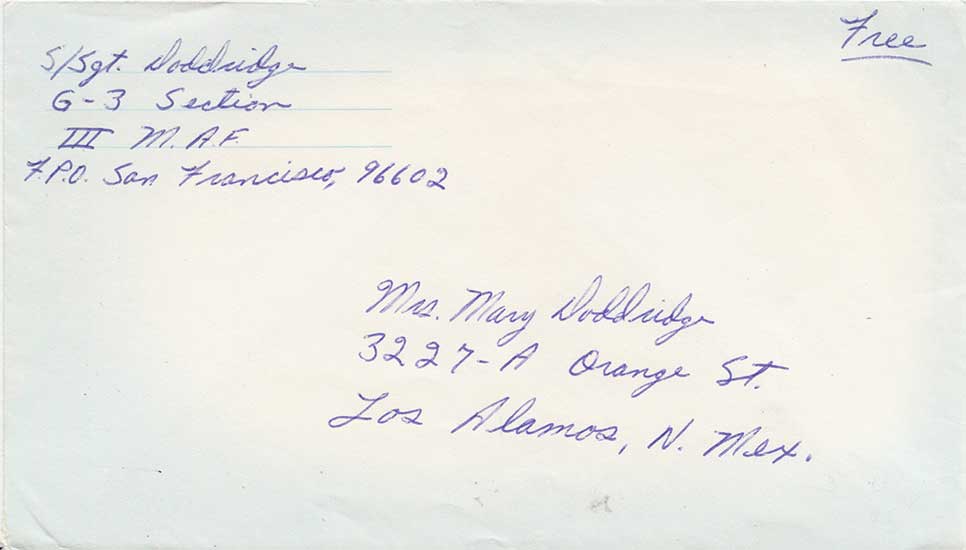 Free
S/Sgt. Doddridge
G-3 Section
III M.A.F.
F.P.O. San Francisco, 96602
Mrs. Mary Doddridge
3227-A Orange St.
Los Alamos, N. Mex.